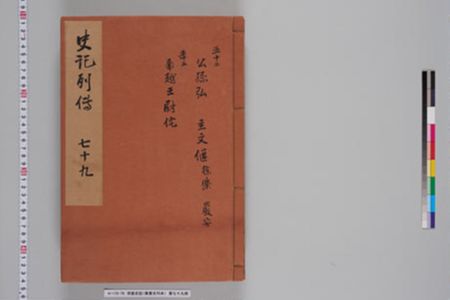 史記列傳 七十九
五十二
公孫弘 主父偃 徐樂 嚴安
南越王尉佗